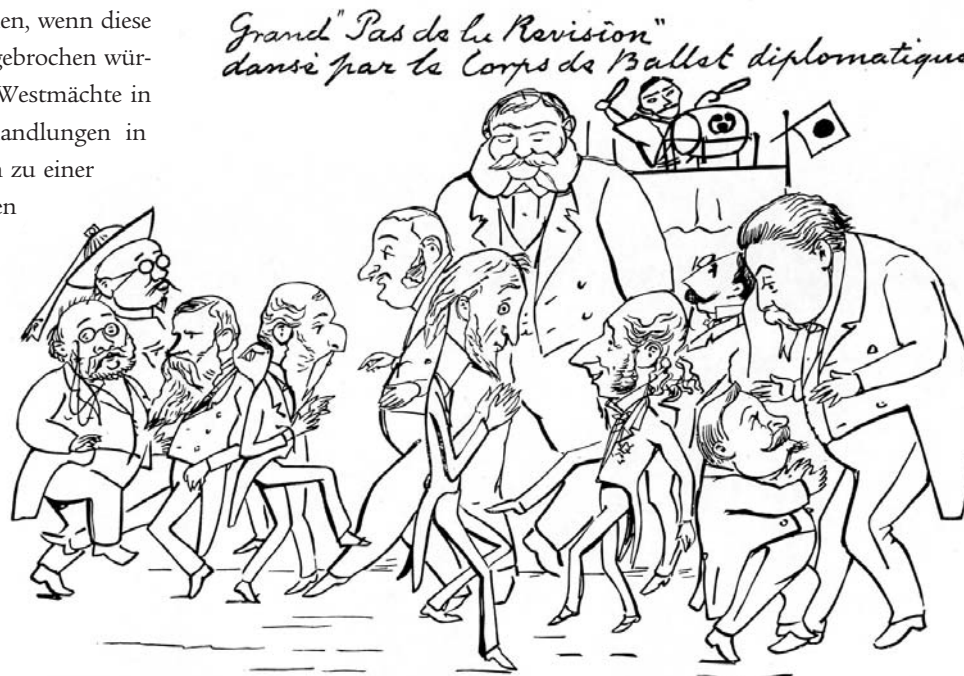 en, wenn diese
gebrochen wür-
Westmächte in
handlungen in
n zu einer
en
Grand "Pas de la Revision"
dansé par le Corps de Ballet diplomatique